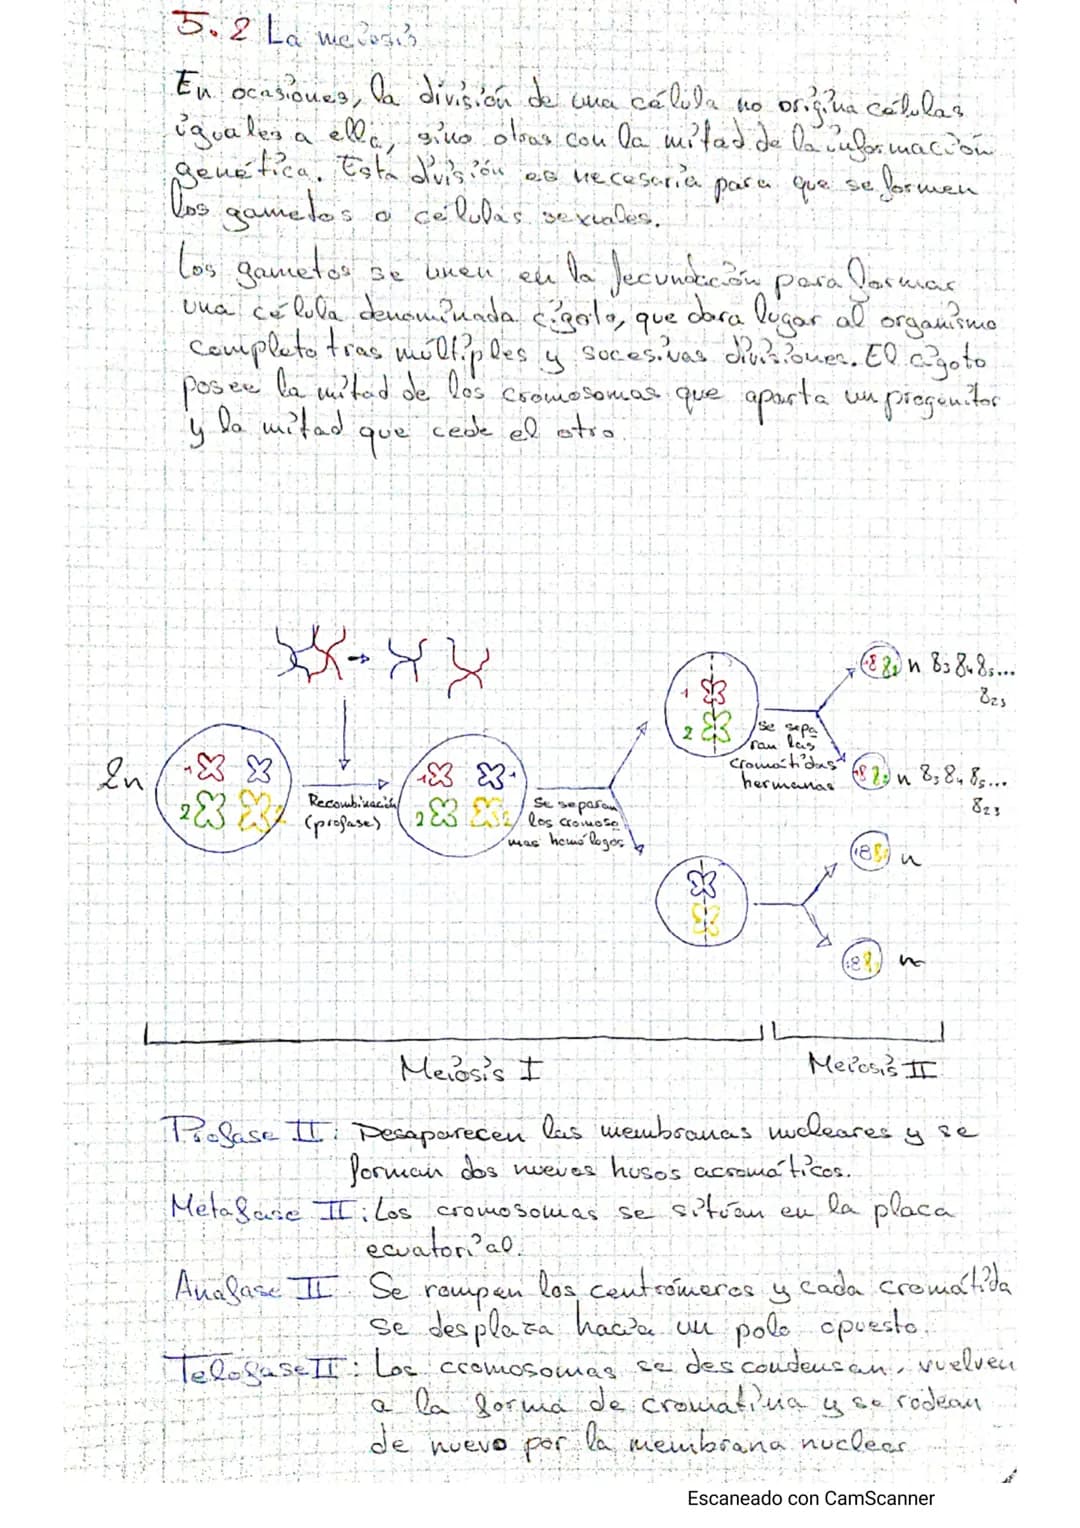 5.2 La meiosis
En ocasiones, la división de una célula no origina células
iguales a ella, sino otras con la mitad de la información
genética. Esta división es necesaria para que se formen
los gametos o células sexuales.
Los gametos se unen en la fecundación para formar
una célula denominada cigoto, que dara lugar al organismo
completo tras múltiples y socesivas divisiones. El cigoto
posee la mitad de los cromosomas que aporta un progenitor
y la mitad que cede el otro.
2n
1
2
2
Recombinación
(profase)
1
1
2
2
Se separan
los cromoso
mas homólogos
1
2
se sepa
ran las
cromátidas
hermanas
n 8₃ 8₄ 8₅...
8₂₃
n 8₃ 8₄ 8₅...
8₂₃
n
n
Meiosis I
Meiosis II
Profase II: Desaparecen las membranas nucleares y se
forman dos nuevos husos acromáticos.
Metafase II: Los cromosomas se sitúan en la placa
ecuatorial.
Anafase II: Se rompen los centrómeros y cada cromátida
se desplaza hacia un polo opuesto.
Telofase II: Los cromosomas se descondensan, vuelven
a la forma de cromatina y se rodean
de nuevo por la membrana nuclear
Escaneado con CamScanner